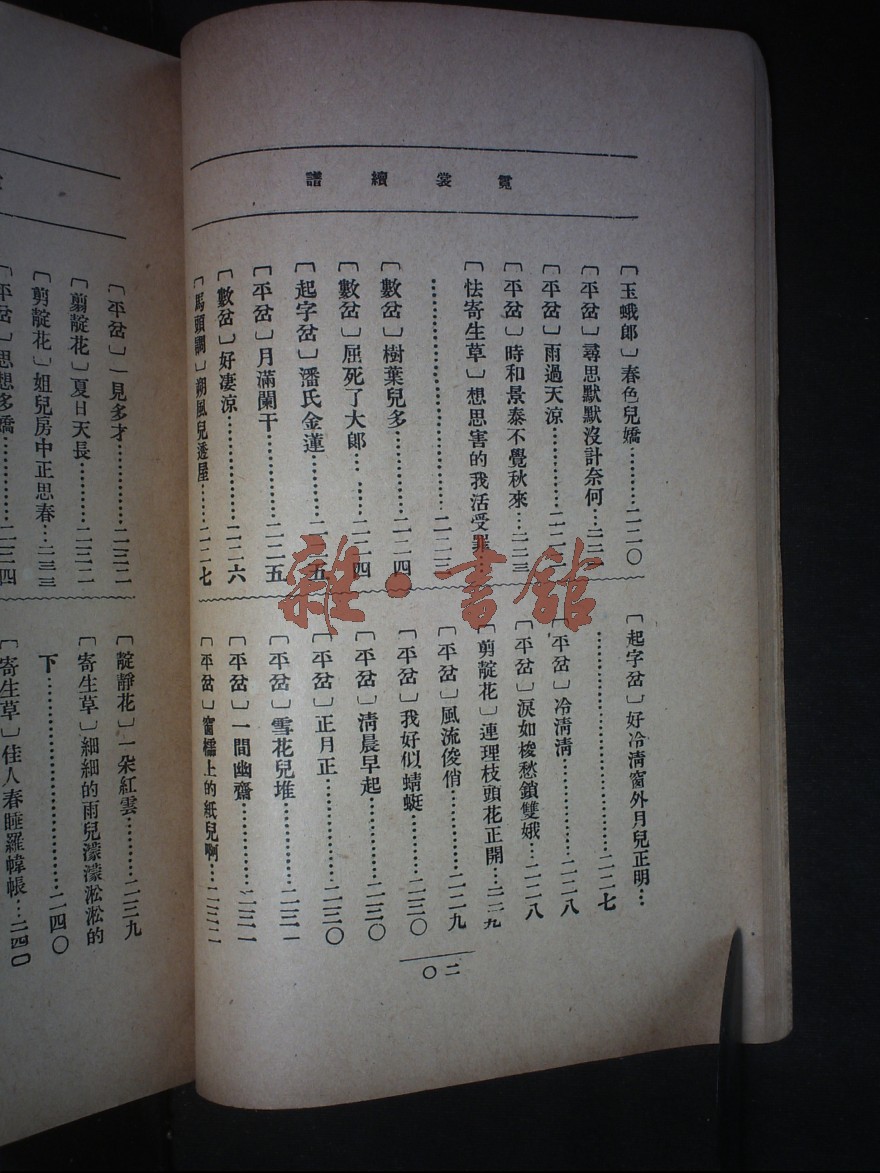 霓裳續譜
〔玉蛾郎〕春色兒嬌………二二〇
〔平岔〕尋思默默沒計奈何…二二
〔平岔〕雨過天涼…………二二
〔平岔〕時和景泰不覺秋來…二二三
〔怯寄生草〕想思害的我活受罪…
………………………二二三
〔數岔〕樹葉兒多…………二二四
〔數岔〕屈死了大郎………二二四
〔起字岔〕潘氏金蓮………二二五
〔平岔〕月滿闌干…………二二五
〔數岔〕好凄涼……………二二六
〔馬頭調〕朔風兒透屋……二二七
〔起字岔〕好冷淸窗外月兒正明…
………………………二二七
〔平岔〕冷淸淸……………二二八
〔平岔〕淚如梭愁鎖雙娥…二二八
〔剪靛花〕連理枝頭花正開…二二九
〔平岔〕風流俊俏…………二二九
〔平岔〕我好似蜻蜓………二三〇
〔平岔〕淸晨早起…………二三〇
〔平岔〕正月正……………二三〇
〔平岔〕雪花兒堆…………二三一
〔平岔〕一間幽齋…………二三一
〔平岔〕窗櫺上的紙兒啊…二三二
二〇
〔平岔〕一見多才…………二三二
〔剪靛花〕夏日天長………二三二
〔剪靛花〕姐兒房中正思春…二三三
〔平岔〕思想多嬌…………二三四
〔靛靜花〕一朵紅雲………二三九
〔寄生草〕細細的雨兒濛濛淞淞的
下………………………二四〇
〔寄生草〕佳人春睡羅幃帳…二四〇
雜·書舘